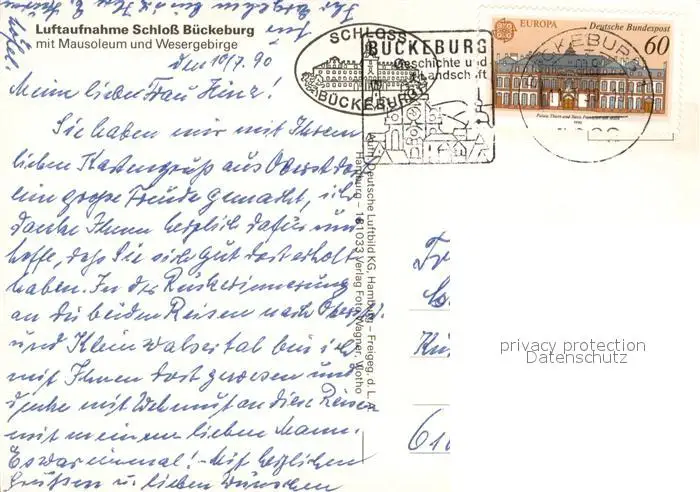 Luftaufnahme Schloß Bückeburg
mit Mausoleum und Wesergebirge
SCHLOSS
BÜCKEBURG
BÜCKEBURG
Geschichte und
Landschaft
EUROPA Deutsche Bundespost
60
Palais Thurn und Taxis, Frankfurt am Main
1990
BÜCKEBURG
den 10/7. 90
Meine liebe Frau Hinz!
Sie haben mir mit Ihrem
lieben Kartengruß aus Oberstdorf
eine große Freude gemacht, ich
danke Ihnen herzlich dafür und
hoffe, daß Sie sich gut dort erholt
haben. In der Rückerinnerung
an die beiden Reisen nach Oberstd.
und Kleinwalsertal bin ich
mit Ihnen dort gewesen und
denke mit Wehmut an diese Reisen
mit meinem lieben Mann.
Es war einmal! - Mit herzlichen
Grüßen u. lieben Wünschen
Aufn.: Deutsche Luftbild KG, Hamburg – Freigeg. d. L. A.
Hamburg – 181033 Verlag Foto Wagner, Vlotho
privacy protection
Datenschutz